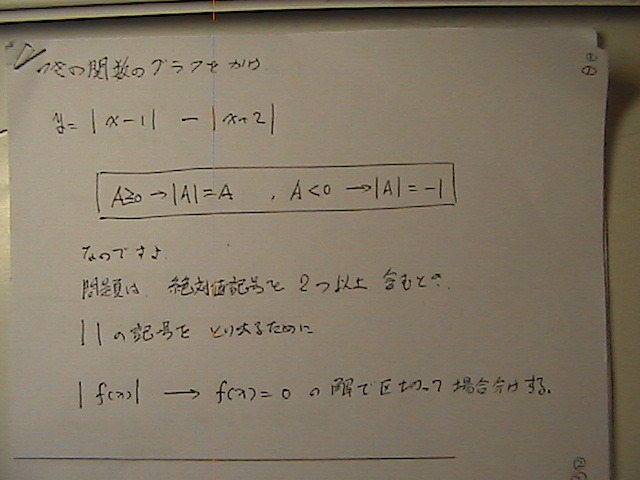 次の関数のグラフをかけ
y= |x-1| - |x+2|
A≧0→|A|=A , A<0 →|A|=-|
なのですよ.
問題は 絶対値記号を 2つ以上 含むとき.
||の記号を とりさるために
|f(x)| → f(x)=0 の解で区切って場合分けする.